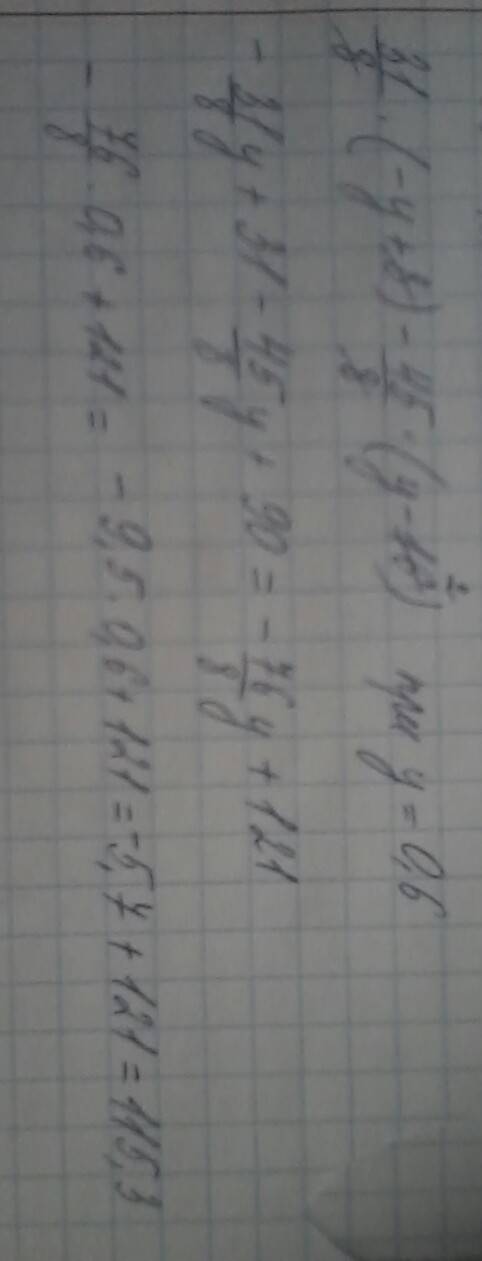 31/8 · (-y + 8) - 45/8 · (y - 16) при y = 0,6
- 31/8 y + 31 - 45/8 y + 90 = - 76/8 y + 121
- 76/8 · 0,6 + 121 = - 9,5 · 0,6 + 121 = -5,7 + 121 = 115,3